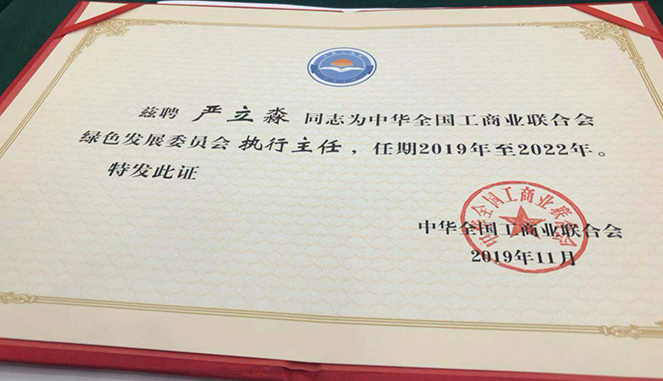 兹聘 严立淼 同志为中华全国工商业联合会
绿色发展委员会 执行主任，任期2019年至2022年。
特发此证
中华全国工商业联合会
2019年11月
中华全国工商业联合会